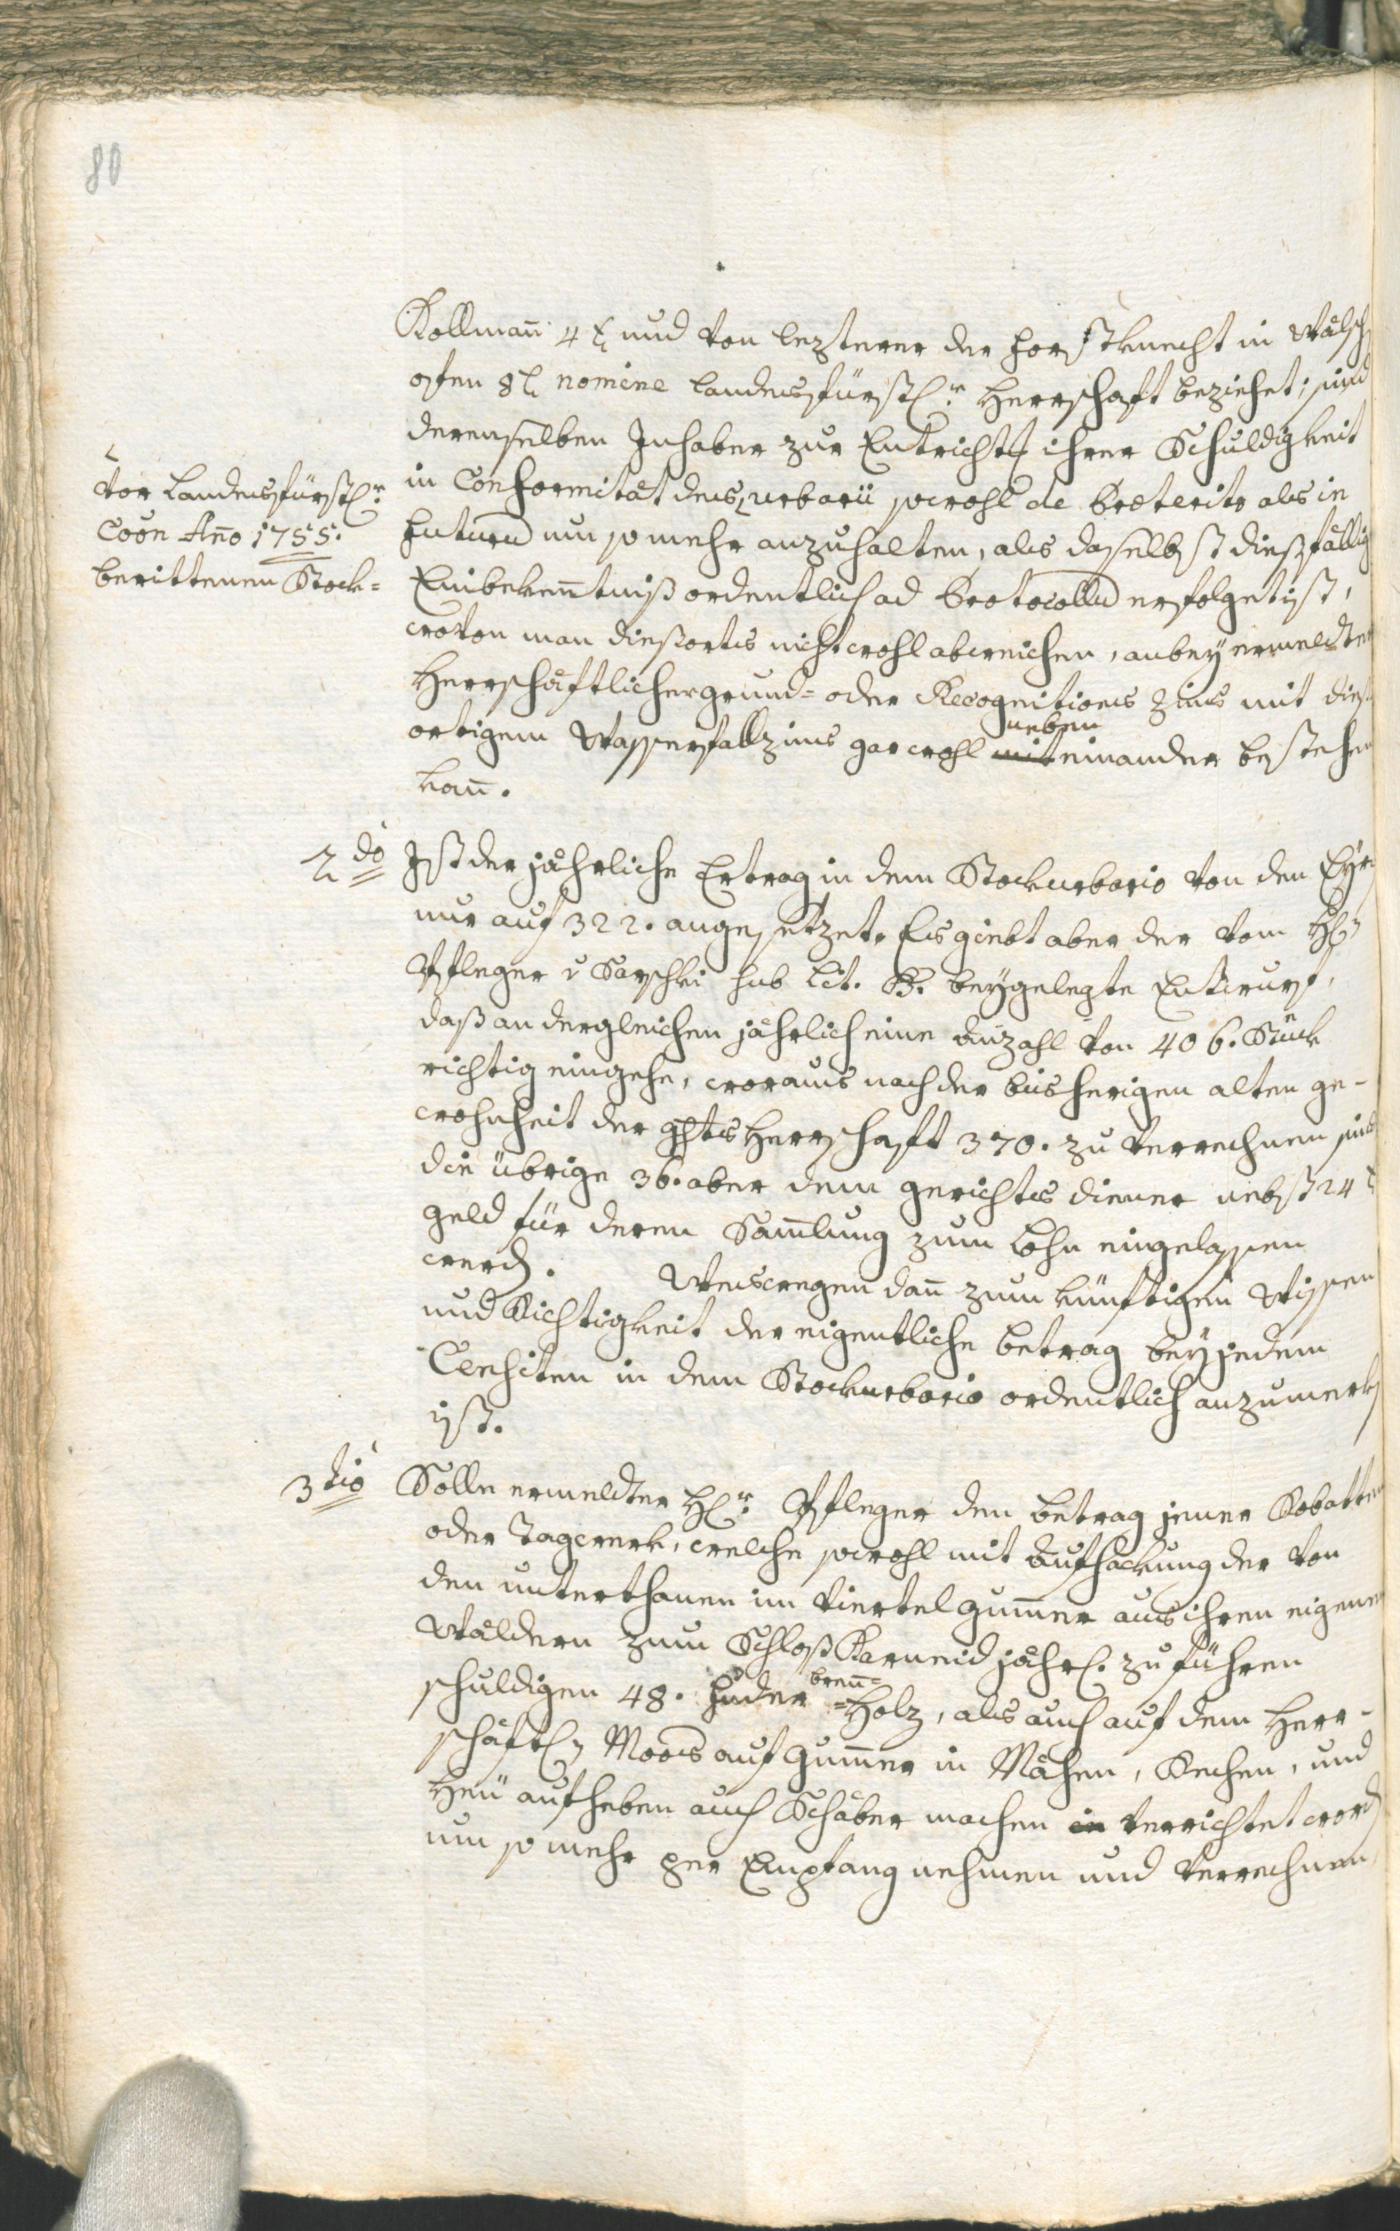 80
Kollmañ 4 x und von lezterer der Forstknecht in Wälsch
ofen 8 x nomine landesfürstl:r Herrschaft beziehet; sind
derenselben Inhaber zur Entricht ihrer Schuldigkeit
in Conformität des urbarii sowohl de Præterito als in
futurum um so mehr anzuhalten, als daselbst dießfällig
Einbekeñtniß ordentlich ad Protocollum erfolget ist,
wovon man diesorts nicht wohl abweichen, anbey ermeldter
Herrschäftlicher grund= oder Recognitions Zins mit dies
ortigem Wasserfallzins gar wohl mit neben einander bestehen
kañ.
vor Landesfürstl:r
Coõn Añno 1755.
berittenen Stock=
2do Ist der jährliche Ertrag in dem Stockurbario von den Eyr
nur auf 322. angesetzet. Es giebt aber der vom H:
Pfleger v Sarschki sub Lit. B. beygelegte Entwurf,
daß an dergleichen jährlich eine Anzahl von 406. Stück
richtig eingehe, woraus nach der bisherigen alten ge-
wohnheit der ghts Herrschaft 370. zu verrechnen sind
die übrige 36. aber dem gerichts diener nebst 24 x
geld für deren Sam̃lung zum Lohn eingelassen
werd. Weswegen dañ zum künftigen Wissen
und Richtigkeit der eigentliche betrag bey jedem
Censiten in dem Stockurbario ordentlich anzumerk
ist.
3tio Solle ermeldter H:r Pfleger den betrag jener Robatten
oder Tagwerk, welche sowohl mit Aufhackung der von
den unterthanen im Viertel Gum̃er aus ihren eigenen
Wäldern zum Schloß Karneid jährl. zu führen
schuldigen 48. Fuder breñ= =Holz, als auch auf dem Herr-
schäftl: Moos auf Gum̃er in Mähen, Rechen, und
Heü aufheben auch Schäber machen in verrichtet word
um so mehr per Empfang nehmen und verrechnen